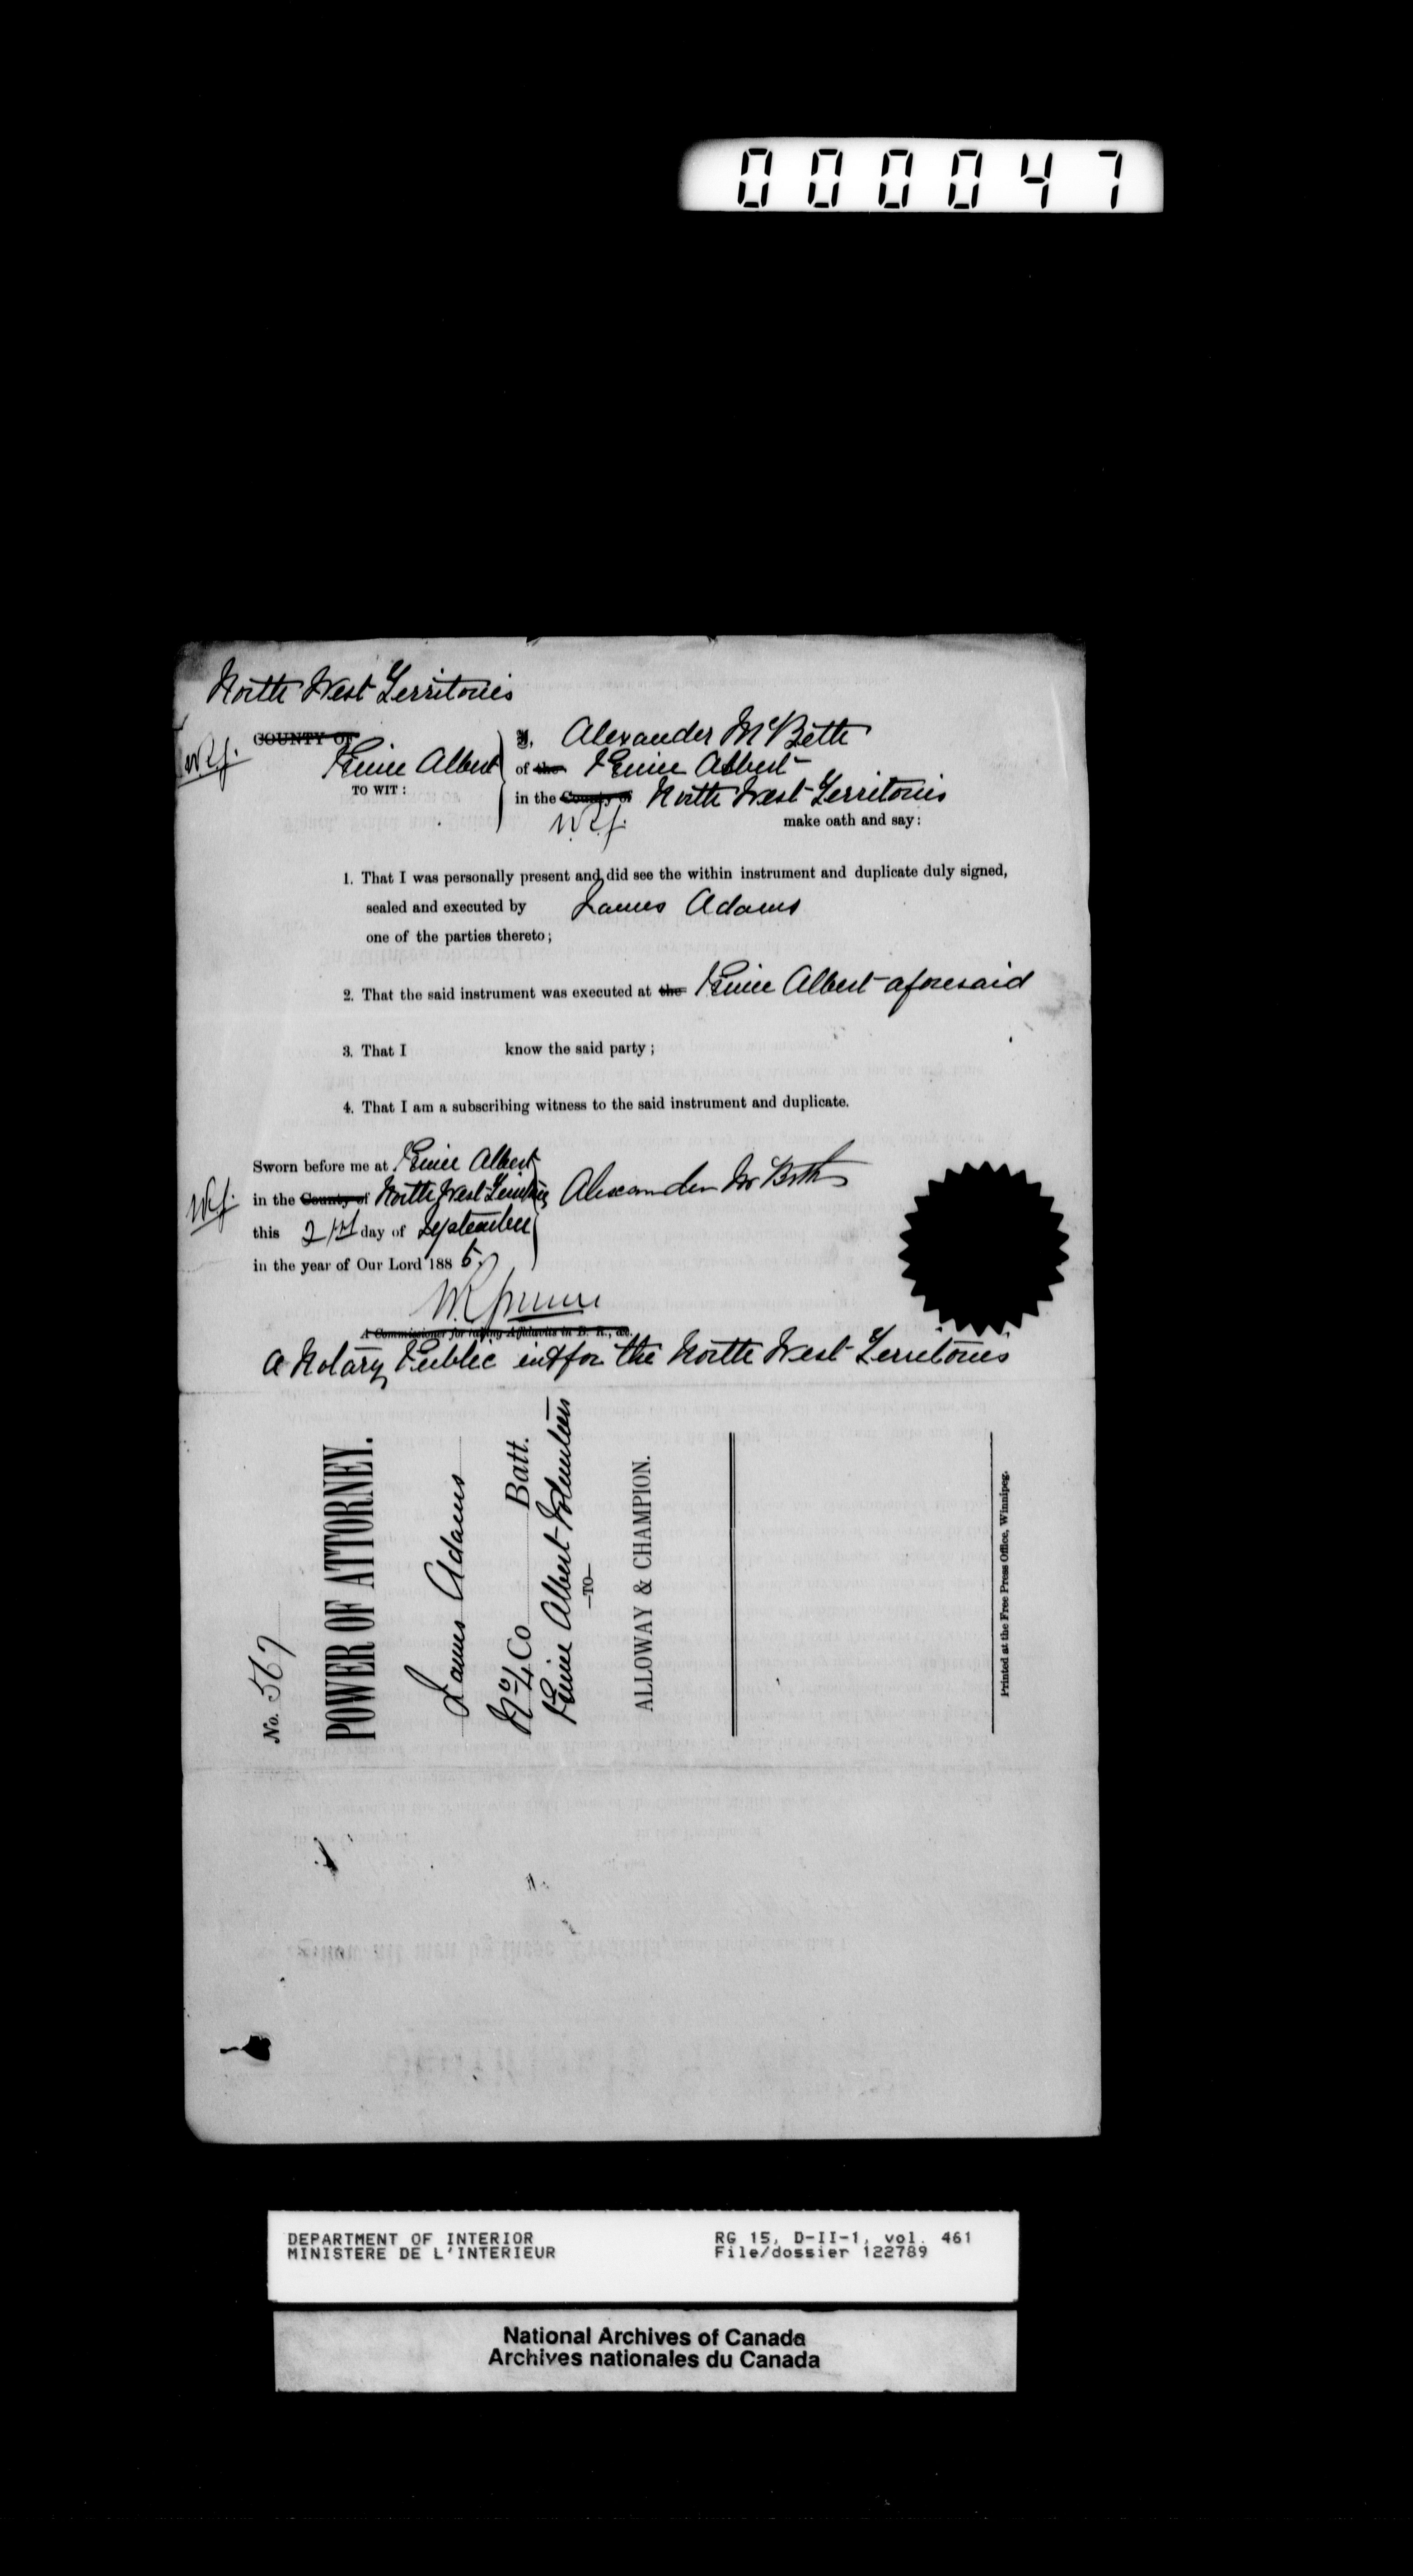 000047
North West Territories
COUNTY OF
W.R.G. Prince Albert
TO WIT:
I, Alexander McBeth
of the Prince Albert
in the County of North West Territories
W.R.G. make oath and say:
1. That I was personally present and did see the within instrument and duplicate duly signed,
sealed and executed by James Adams
one of the parties thereto;
2. That the said instrument was executed at the Prince Albert aforesaid
3. That I know the said party;
4. That I am a subscribing witness to the said instrument and duplicate.
Sworn before me at Prince Albert
in the County of North West Territories
this 21st day of September
in the year of Our Lord 1885.
Alexander McBeth
A Commissioner for taking Affidavits in B. R., &c.
a Notary Public in & for the North West Territories
No. 567
POWER OF ATTORNEY.
James Adams
No 4 Co Batt.
Prince Albert Volunteers
—TO—
ALLOWAY & CHAMPION.
Printed at the Free Press Office, Winnipeg.
DEPARTMENT OF INTERIOR RG 15, D-II-1, vol. 461
MINISTERE DE L'INTERIEUR File/dossier 122789
National Archives of Canada
Archives nationales du Canada